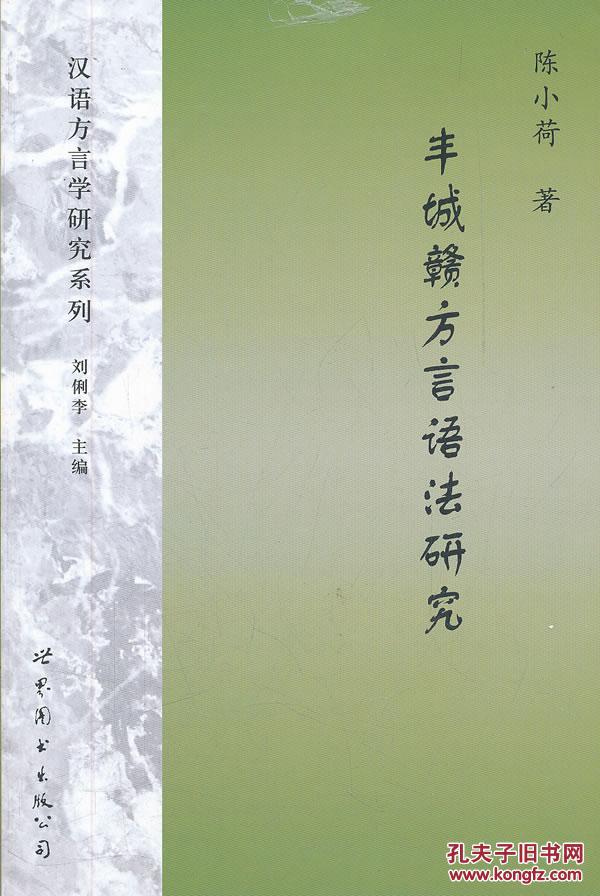 陈小荷 著
丰城赣方言语法研究
汉语方言学研究系列
刘俐李 主编
世界图书出版公司
孔夫子旧书网
www.kongfz.com